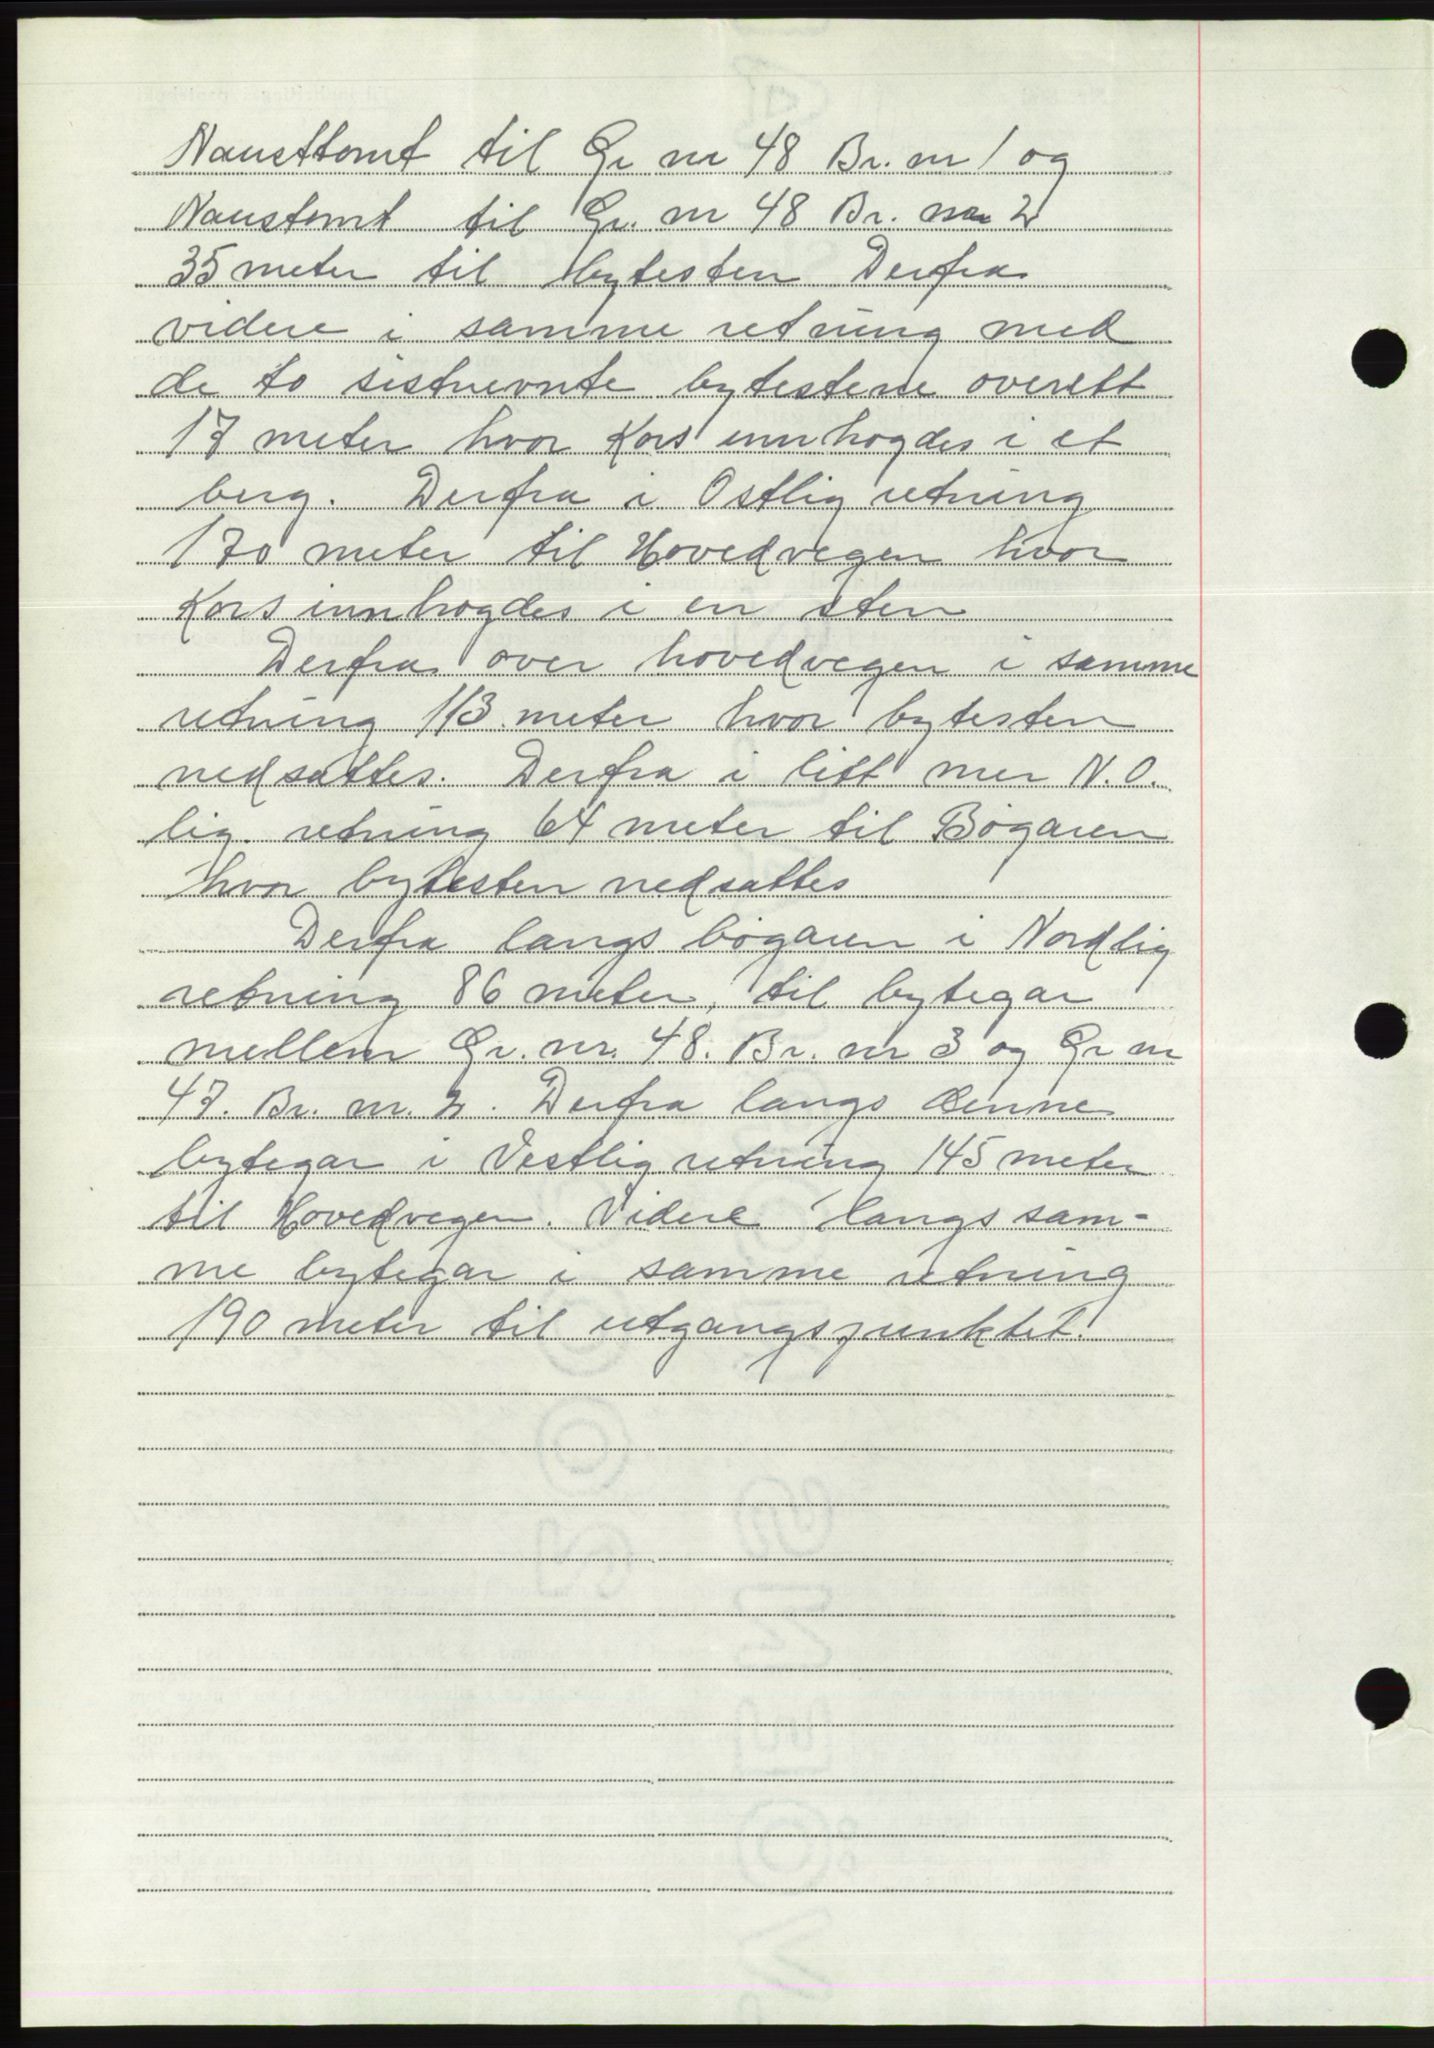 Nausttomt til Gr nr 48 Br. nr 1 og
Naustomt til Gr. nr 48 Br. nr 2
35 meter til bytesten Derfra
videre i samme retning med
de to sistnevnte bytestene overett
17 meter hvor Kors innhogdes i et
berg. Derfra i Østlig retning
170 meter til Hovedvegen hvor
Kors innhogdes i en sten
Derfra over hovedvegen i samme
retning 113 meter hvor bytesten
nedsattes. Derfra i litt mer N.O.
lig retning 64 meter til Bøgaren
hvor bytesten nedsattes
Derfra langs bøgaren i Nordlig
retning 86 meter, til bytegar
mellem Gr. nr. 48. Br. nr 3 og Gr nr
47. Br. nr. 2. Derfra langs denne
bytegar i Vestlig retning 145 meter
til Hovedvegen. Videre langs sam-
me bytegar i samme retning
190 meter til utgangspunktet.